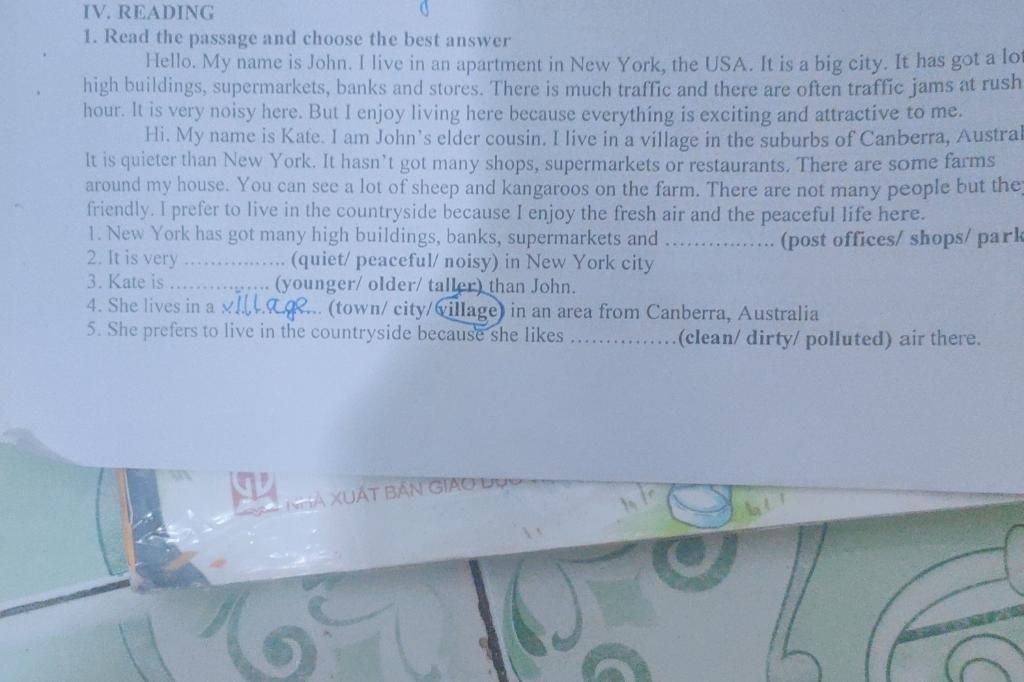 IV. READING
1. Read the passage and choose the best answer
Hello. My name is John. I live in an apartment in New York, the USA. It is a big city. It has got a lot
high buildings, supermarkets, banks and stores. There is much traffic and there are often traffic jams at rush
hour. It is very noisy here. But I enjoy living here because everything is exciting and attractive to me.
Hi. My name is Kate. I am John's elder cousin. I live in a village in the suburbs of Canberra, Austral
It is quieter than New York. It hasn't got many shops, supermarkets or restaurants. There are some farms
around my house. You can see a lot of sheep and kangaroos on the farm. There are not many people but they
friendly. I prefer to live in the countryside because I enjoy the fresh air and the peaceful life here.
1. New York has got many high buildings, banks, supermarkets and ................ (post offices/ shops/ park
2. It is very ............... (quiet/ peaceful/ noisy) in New York city
3. Kate is ............... (younger/ older/ taller) than John.
4. She lives in a village... (town/ city/ village) in an area from Canberra, Australia
5. She prefers to live in the countryside because she likes ................(clean/ dirty/ polluted) air there.
NHÀ XUẤT BẢN GIÁO DỤC